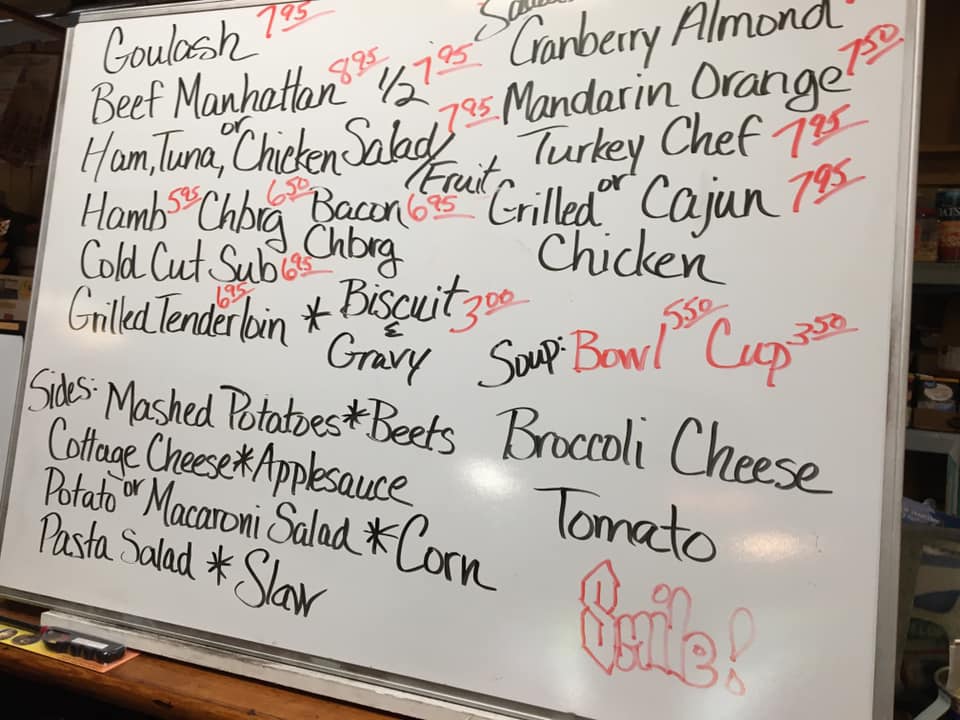 Goulash 7.95
Beef Manhattan 8.95 1/2 7.95
Ham, Tuna, or Chicken Salad 7.95
/Fruit
Hamb 5.95 Chbrg 6.50 Bacon 6.95
Chbrg
Cold Cut Sub 6.95
Grilled Tenderloin 6.95 * Biscuit 3.00
& Gravy
Sides: Mashed Potatoes * Beets
Cottage Cheese * Applesauce
Potato or Macaroni Salad * Corn
Pasta Salad * Slaw
Cranberry Almond
Mandarin Orange 7.50
Turkey Chef 7.95
Grilled or Cajun 7.95
Chicken
Soup: Bowl 5.50 Cup 3.50
Broccoli Cheese
Tomato
Smile!